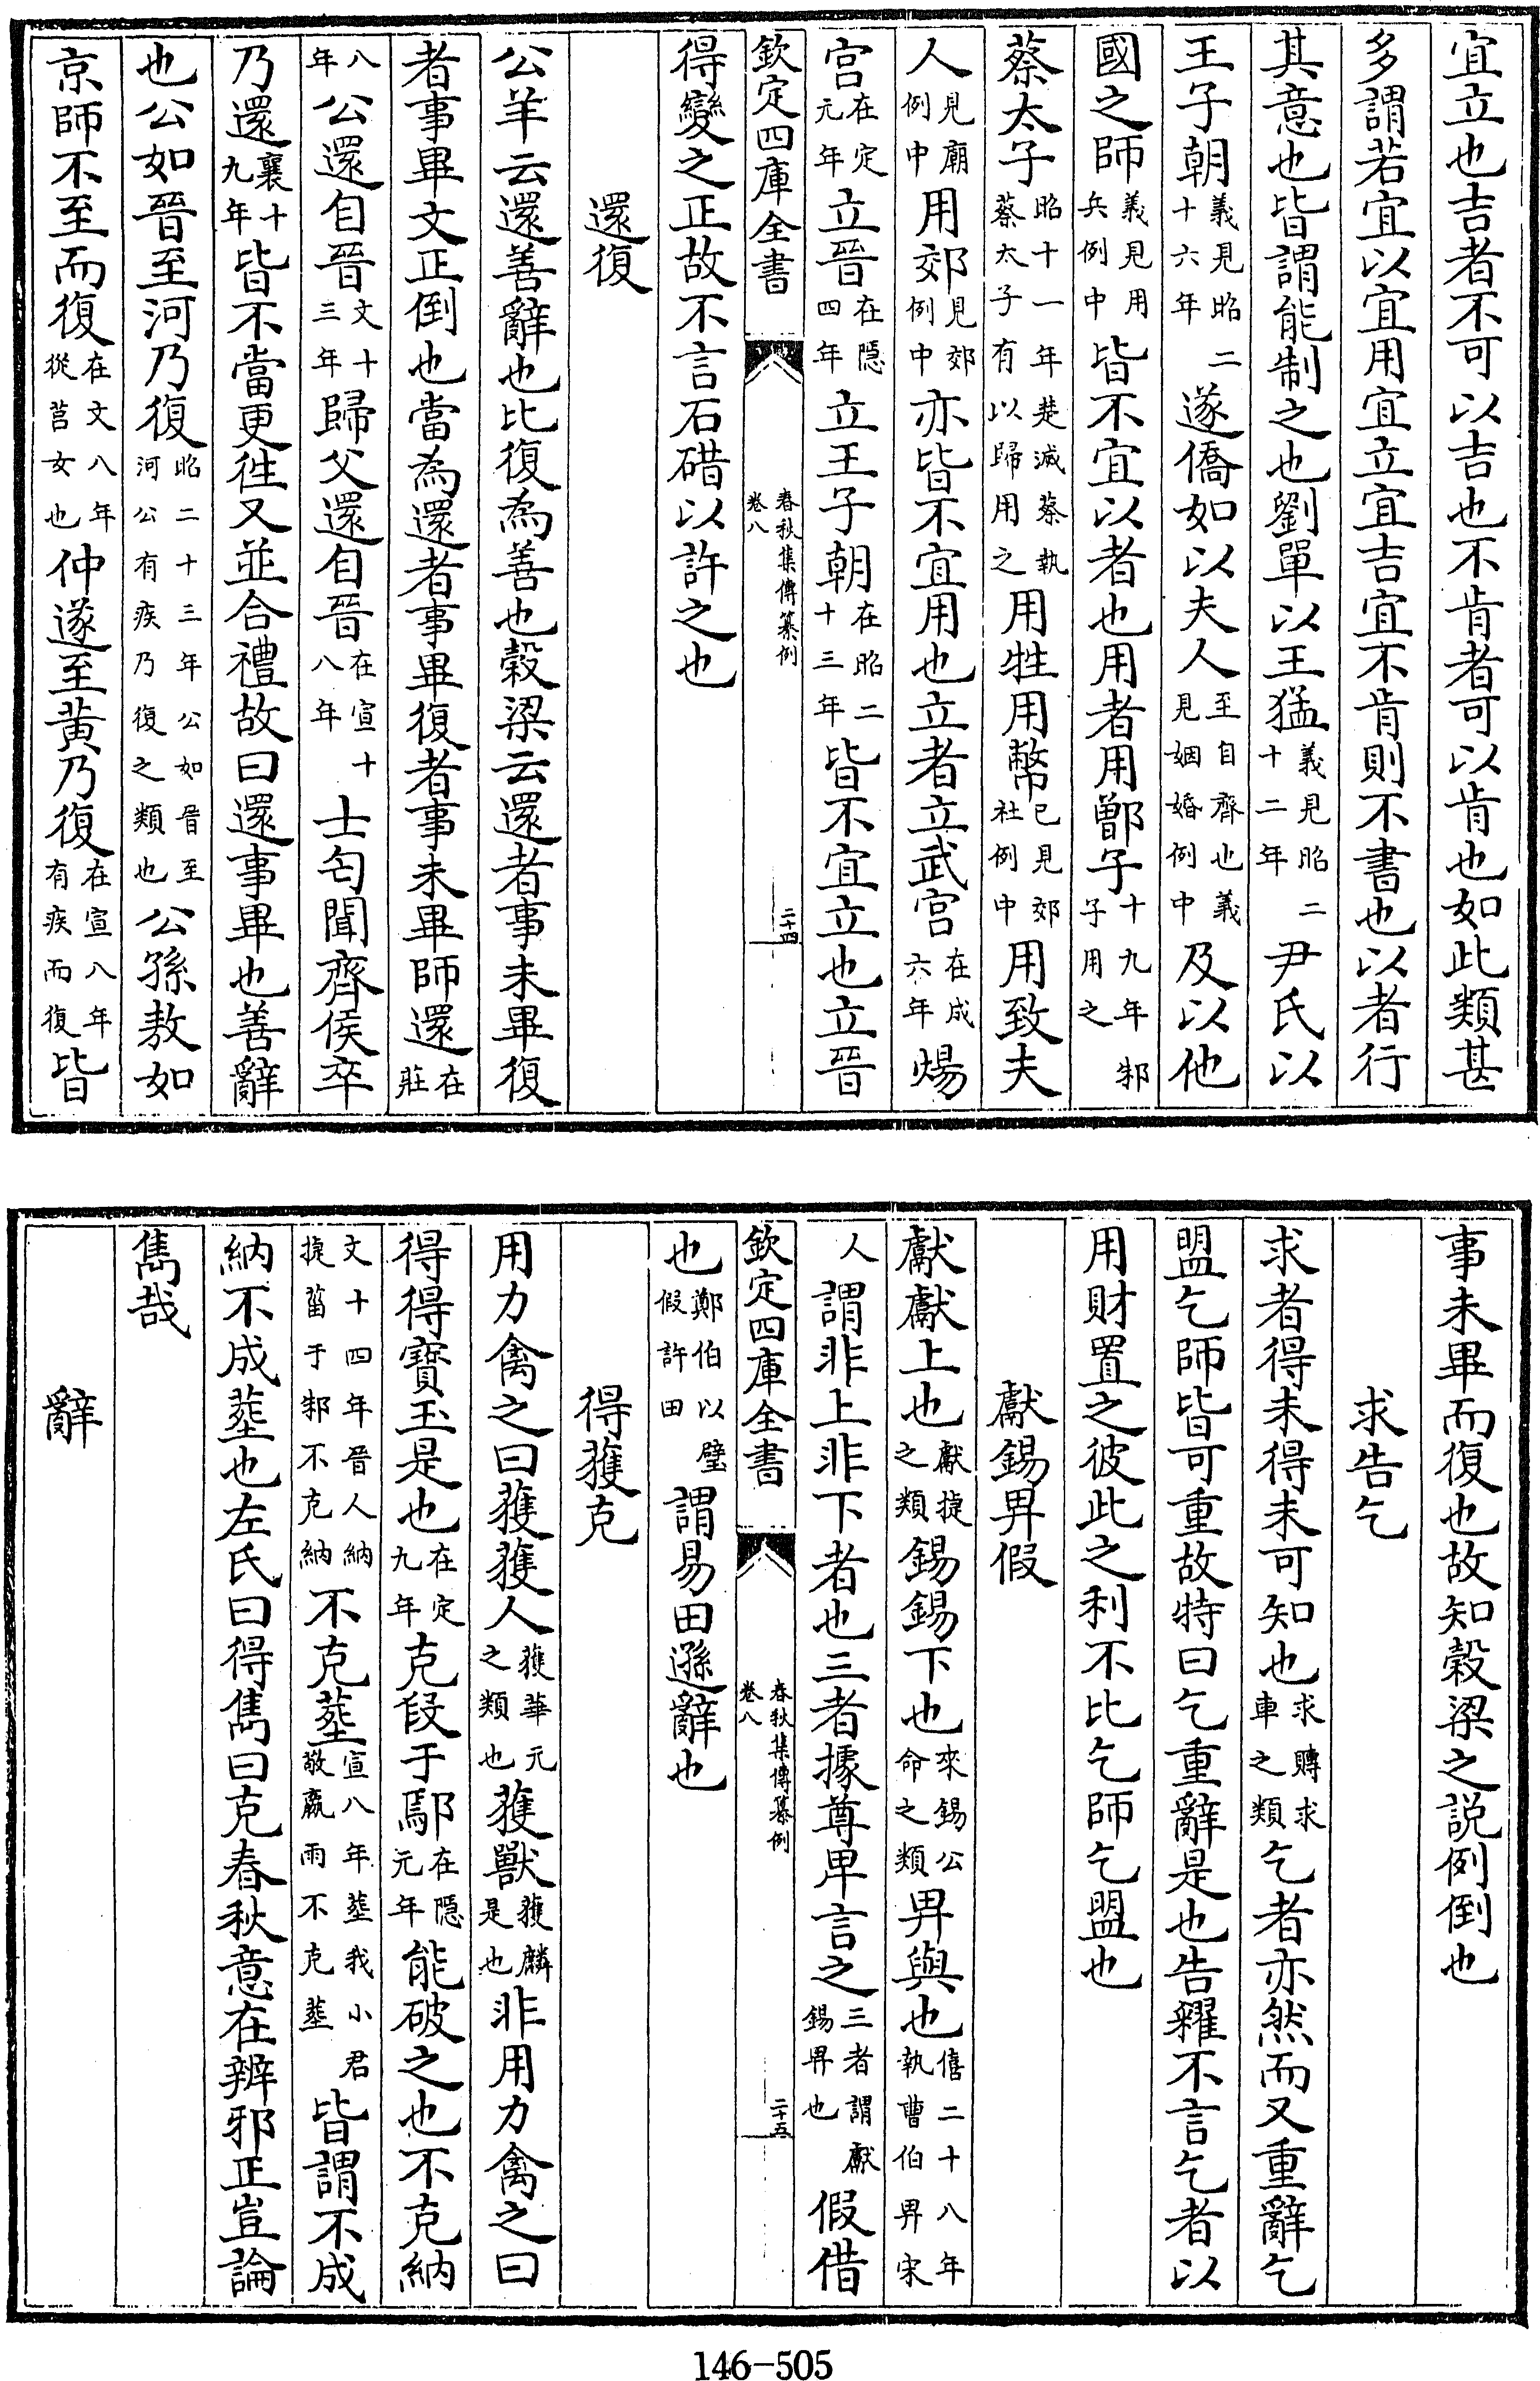 宜立也吉者不可以吉也不肯者可以肯也如此類甚
多謂若宜以宜用宜立宜吉宜不肯則不書也以者行
其意也皆謂能制之也劉單以王猛義見昭二十二年尹氏以
王子朝義見昭二十六年遂僑如以夫人至自齊也義見姻婚例中及以他
國之師義見用兵例中皆不宜以者也用者用鄫子十九年邾子用之
蔡太子昭十一年楚滅蔡執蔡太子有以歸用之用牲用幣已見郊社例中用致夫
人見廟例中用郊見郊例中亦皆不宜用也立者立武宫在成六年煬
宫在定元年立晉在隱四年立王子朝在昭二十三年皆不宜立也立晉
欽定四庫全書 春秋集傳纂例 卷八 二十四
得變之正故不言石碏以許之也
還復
公羊云還善辭也比復為善也穀梁云還者事未畢復
者事畢文正倒也當為還者事畢復者事未畢師還在莊
八年公還自晉文十三年歸父還自晉在宣十八年士匄聞齊侯卒
乃還襄十九年皆不當更徃又並合禮故曰還事畢也善辭
也公如晉至河乃復昭二十三年公如晉至河公有疾乃復之類也公孫敖如
京師不至而復在文八年從莒女也仲遂至黄乃復在宣八年有疾而復皆
事未畢而復也故知穀梁之説例倒也
求告乞
求者得未得未可知也求賻求車之類乞者亦然而又重辭乞
盟乞師皆可重故特曰乞重辭是也告糴不言乞者以
用財置之彼此之利不比乞師乞盟也
獻錫畀假
獻獻上也獻捷之類錫錫下也來錫公命之類畀與也僖二十八年執曹伯畀宋
人謂非上非下者也三者據尊卑言之三者謂獻錫畀也假借
欽定四庫全書 春秋集傳纂例 卷八 二十五
也鄭伯以璧假許田謂易田遜辭也
得獲克
用力禽之曰獲獲人獲華元之類也獲獸獲麟是也非用力禽之曰
得得寳玉是也在定九年克段于鄢在隱元年能破之也不克納
文十四年晉人納捷菑于邾不克納不克塟宣八年塟我小君敬嬴雨不克塟皆謂不成
納不成塟也左氏曰得雋曰克春秋意在辨邪正豈論
雋哉
辭
146-505